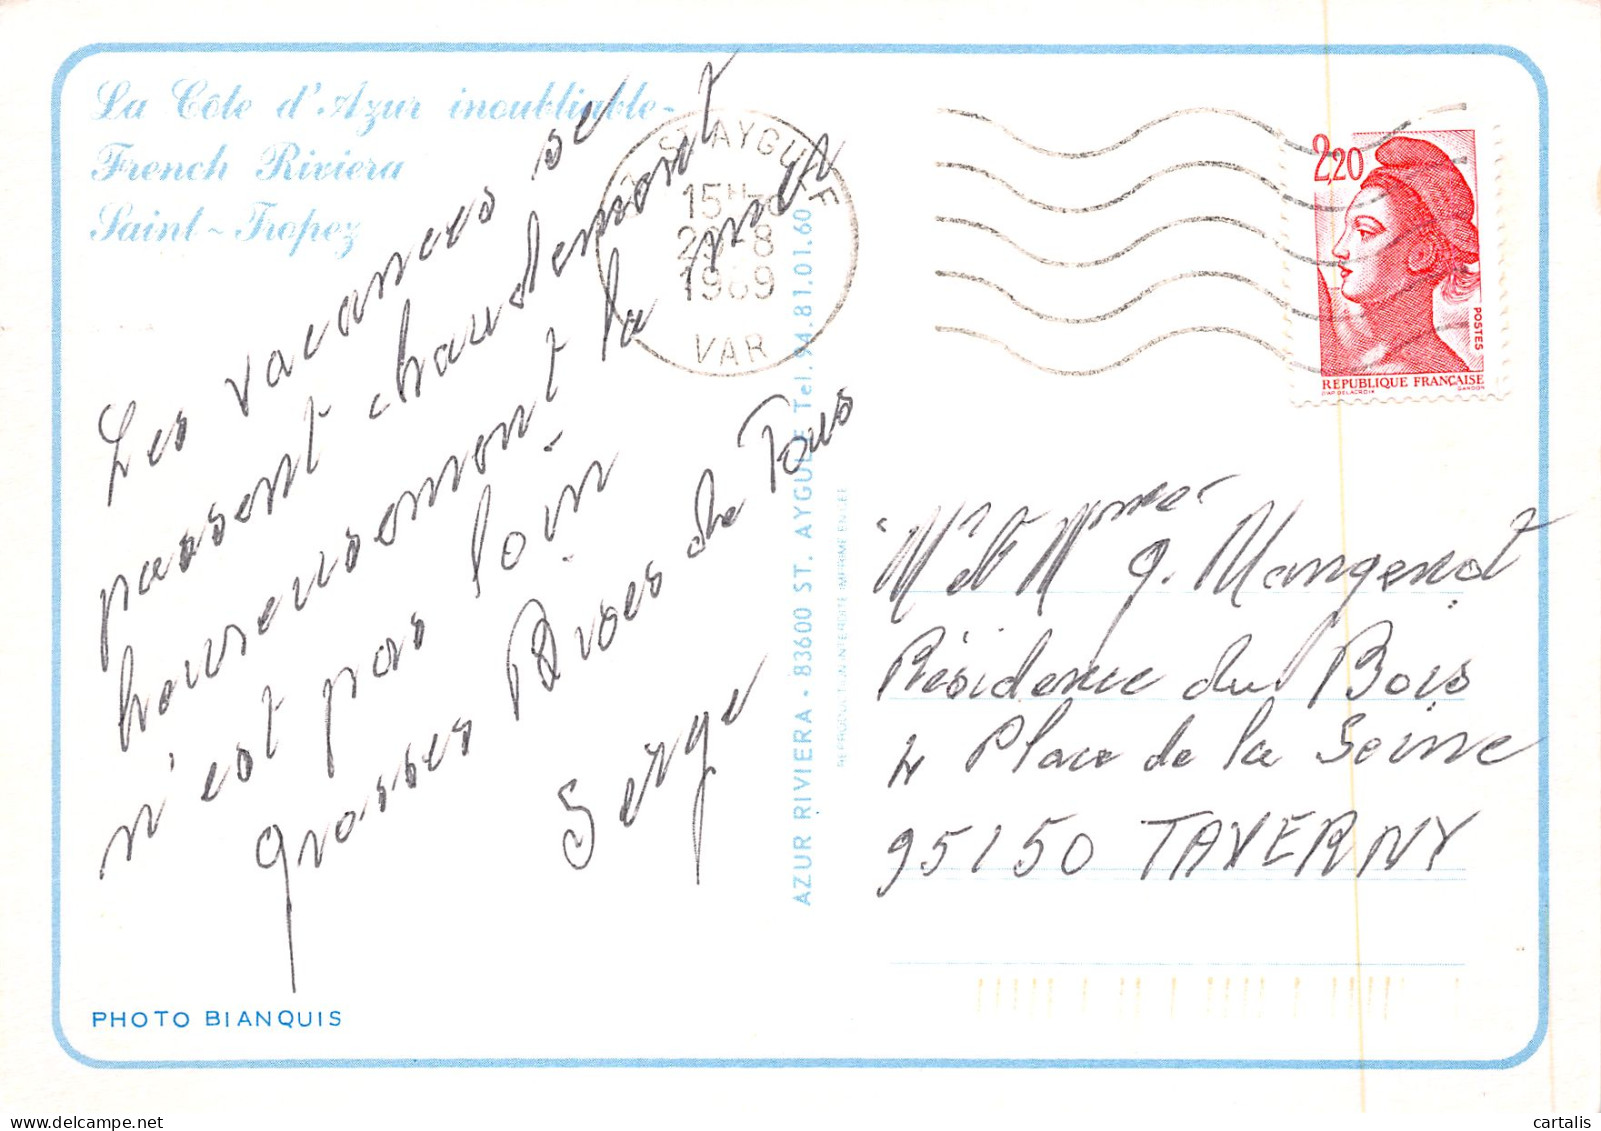 La Côte d'Azur inoubliable-
French Riviera
Saint-Tropez
Les vacances se
passent chaudement
heureusement la mer
n'est pas loin
Grosses Bises de Tous
Serge
PHOTO BIANQUIS
ST AYGULF
15H
8
1989
VAR
AZUR RIVIERA - 83600 ST. AYGULF Tel. 94.81.01.60
REPRODUCTION INTERDITE IMPRIME EN CEE
2,20
POSTES
REPUBLIQUE FRANÇAISE
D'AP. DELACROIX GANDON
Mr et Mme g. Mangenot
Résidence du Bois
4 Place de la Seine
95150 TAVERNY
cartalis